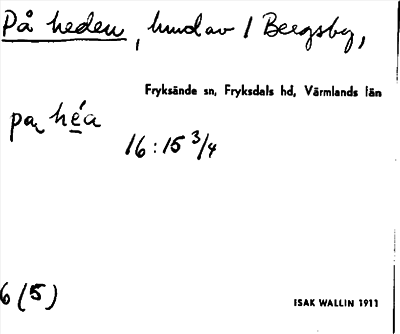 På heden, hmd av 1 Bergsby,
Fryksände sn, Fryksdals hd, Värmlands län
pa, héa
16:15 3/4
6 (5)
ISAK WALLIN 1911